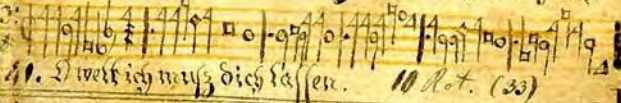 O welt ich muß dich lassen. 10 Rot. (33)